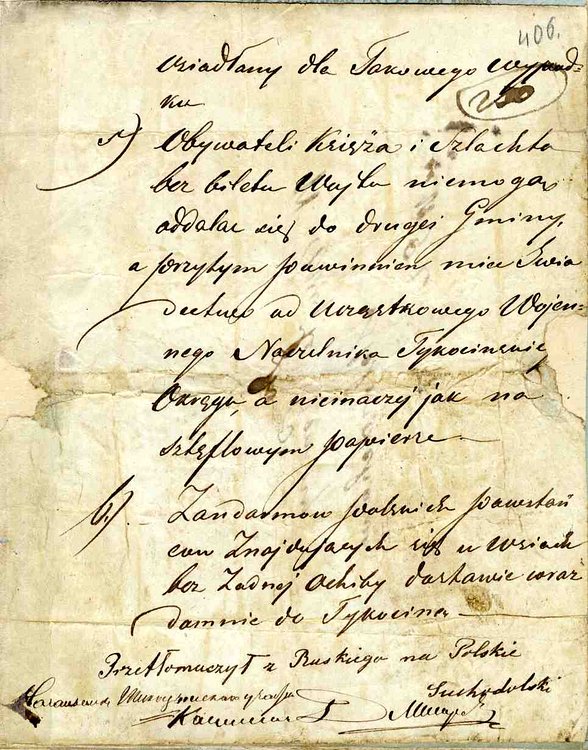 406.
usiadłany dla Takowego wypad-
ku
5) Obywateli Księża i Szlachta
bez biletu Wajta niemogą
addalac się do drugej Gminy,
a przytym pawinnien miec Swia
dectwo ad Uczęstkowego Wojen-
nego Naczelnika Tykocinskie
Okręgu, a nieinaczyj jak na
sztęflowym papierze —
6.) Zandarmow polskich pawstań
cow Znajdujących się w Wsiach
bez Zadnej Ochiby dastawic woraz
damnie do Tykocina —
Przetłomaczył z Ruskiego na Polskie
Suchodolski